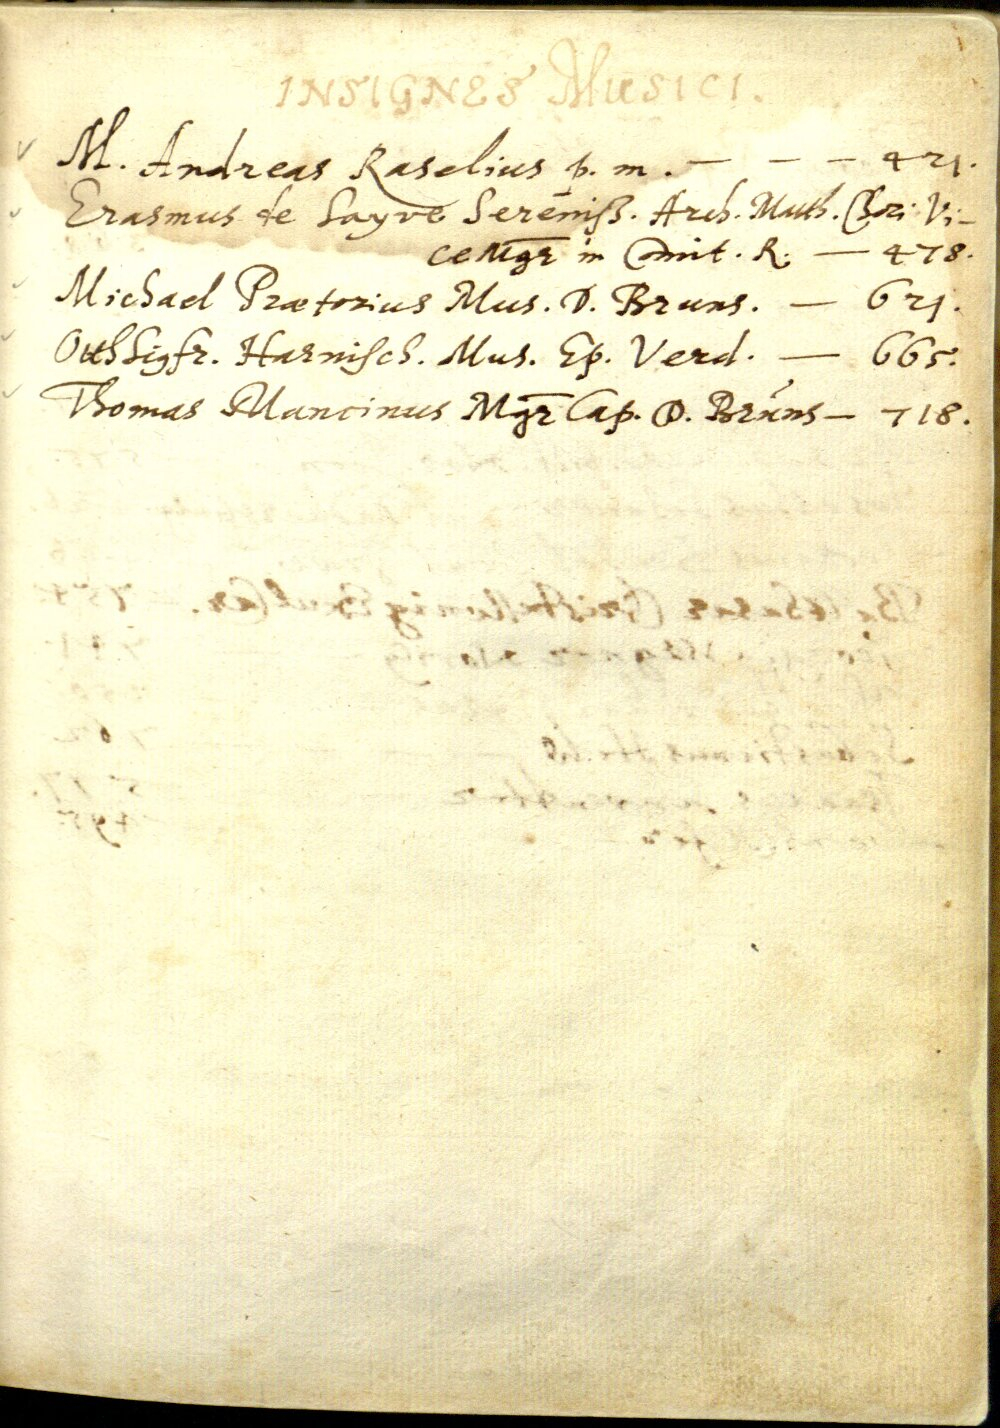 INSIGNES MUSICI.
M. Andreas Raselius p. m. — — — 421.
Erasmus de Sayve Sereniß. Arch. Math. Chori Vi-
ceMgr in Comit. R. — 478.
Michael Prætorius Mus. D. Bruns. — 621.
OtthSigfr. Harnisch. Mus. Ep. Verd. — 665.
Thomas Mancinus Mgr Cap. D. Bruns — 718.